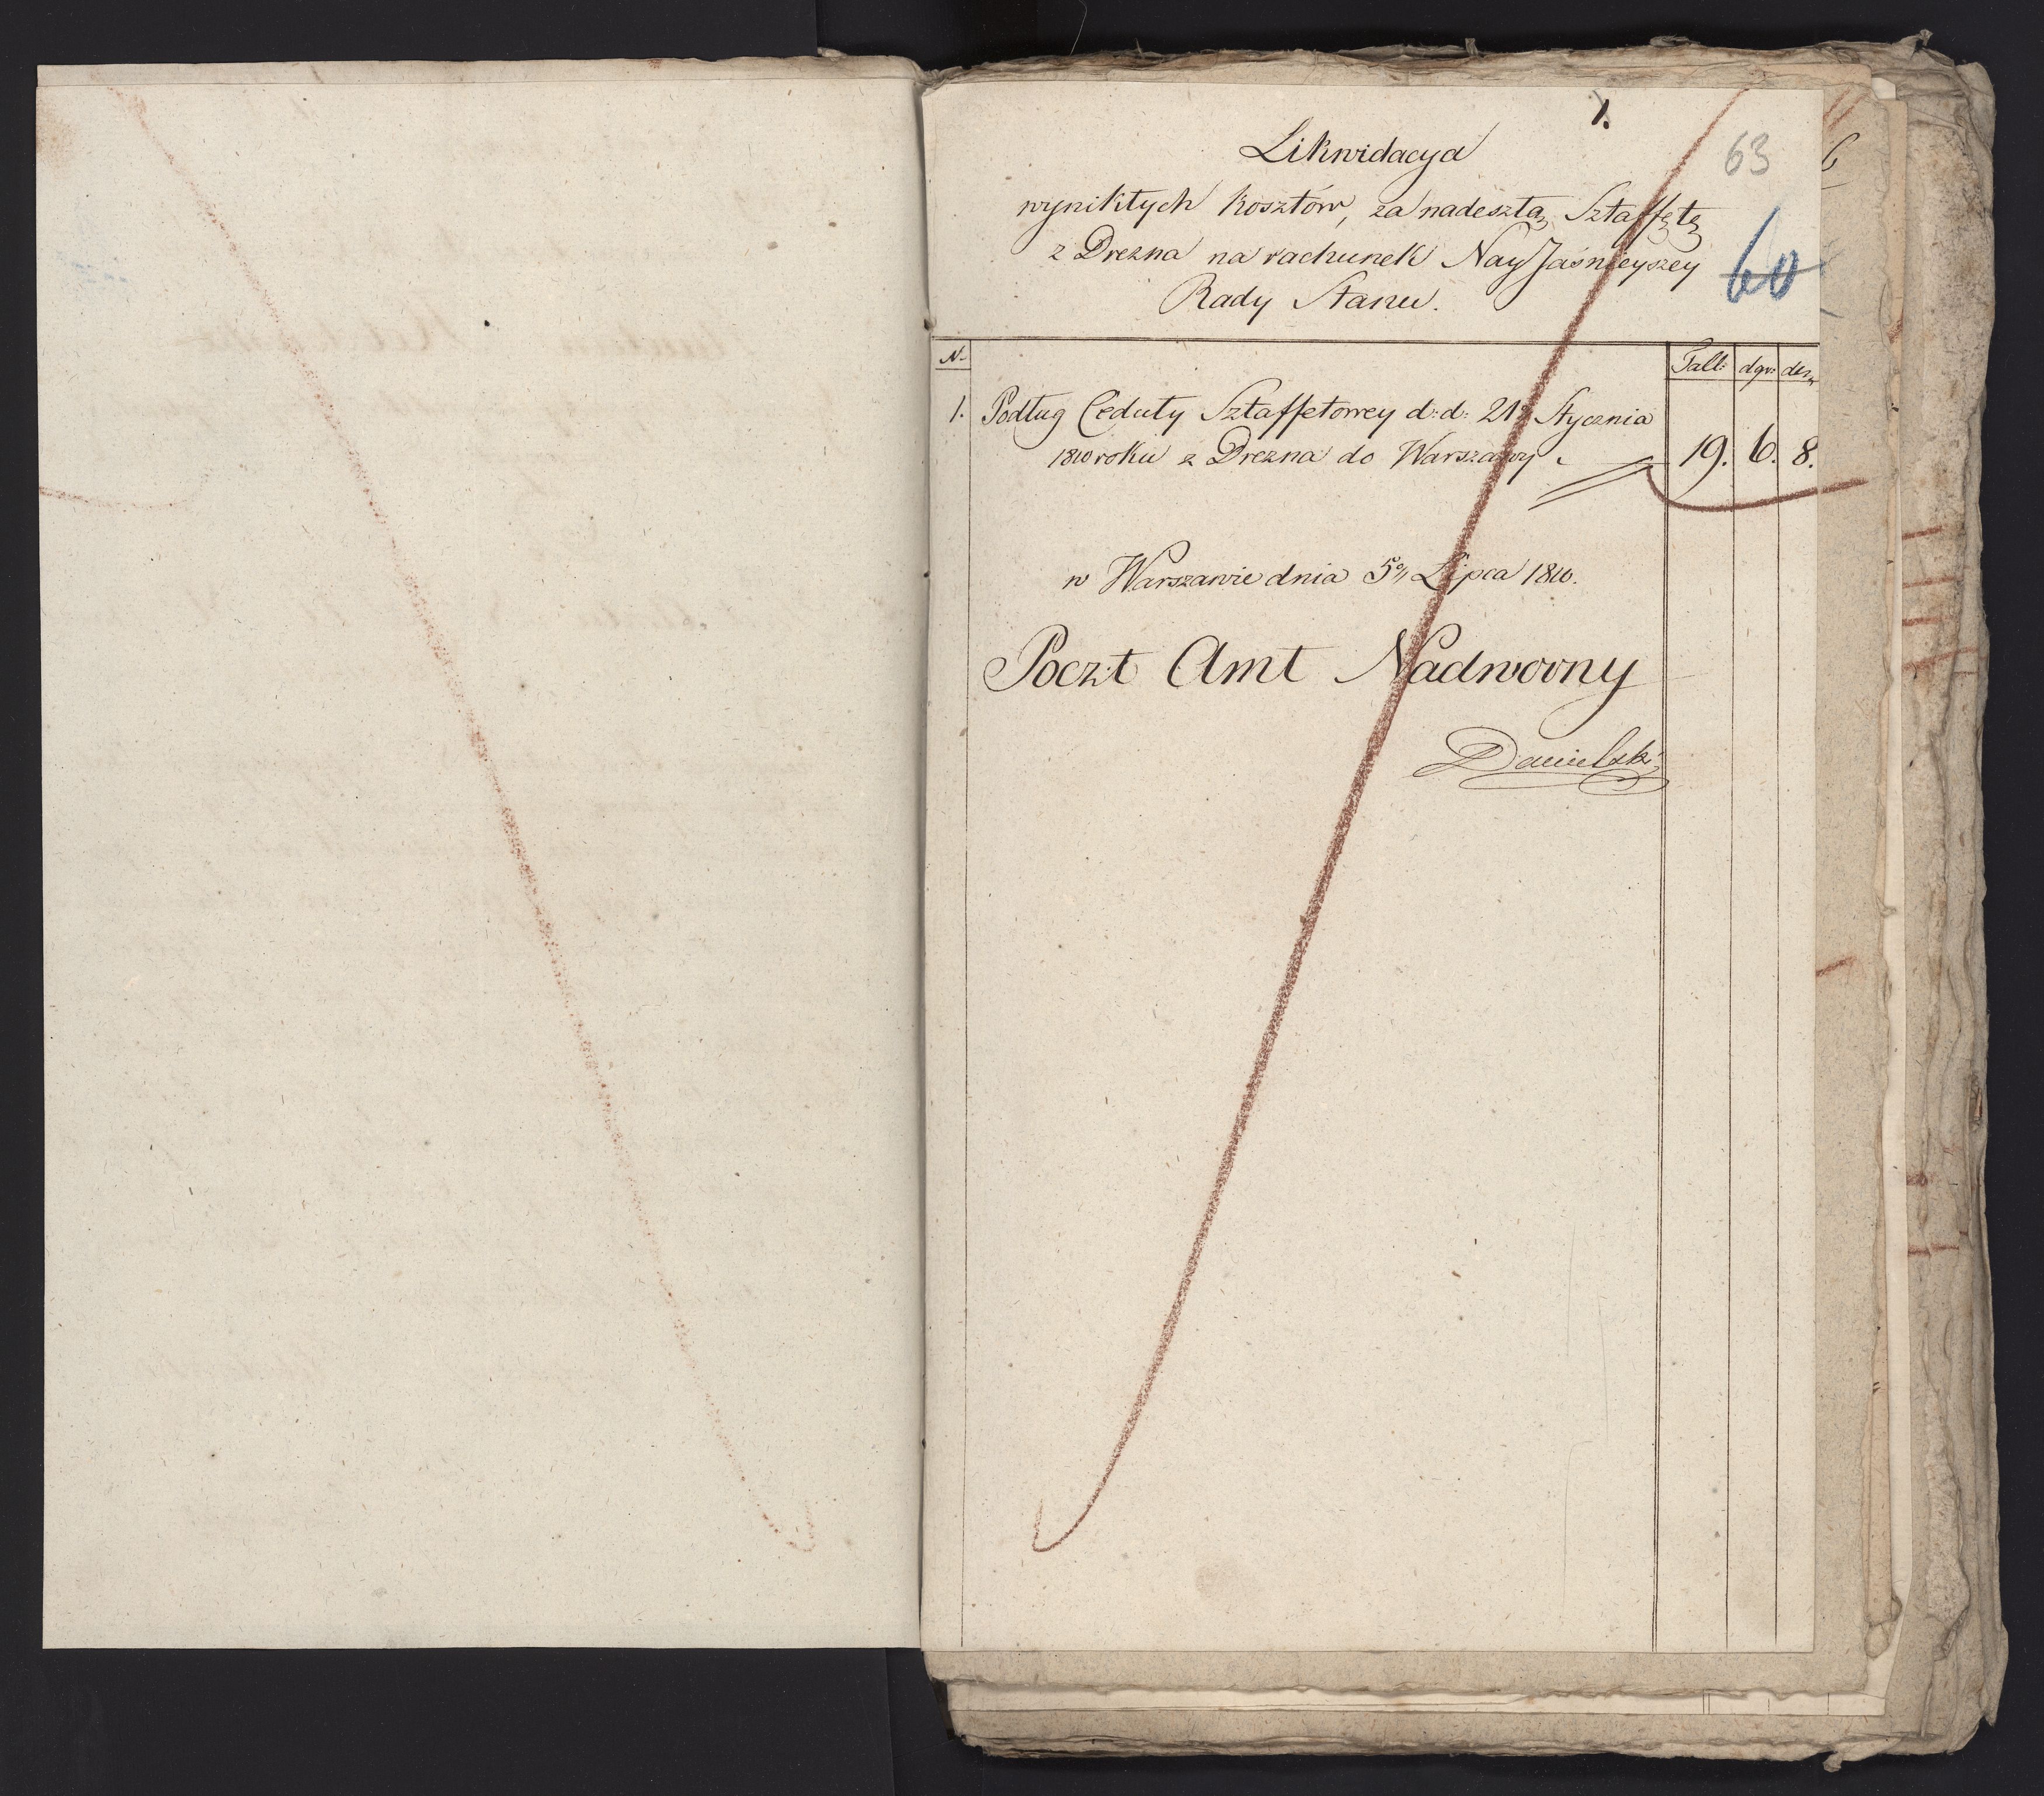 1.
63
Likwidacya
wynikłych kosztów, za nadeszłą Sztaffętę
z Drezna na rachunek NayJaśnieyszey
60
Rady Stanu.
N. Tall: dgr: den
1. Podług Ceduły Sztaffetowey d: d: 21º Stycznia
1810 roku z Drezna do Warszawy 19. 6. 8.
w Warszawie dnia 5º Lipca 1810.
Poczt Amt Nadworny
Danielski